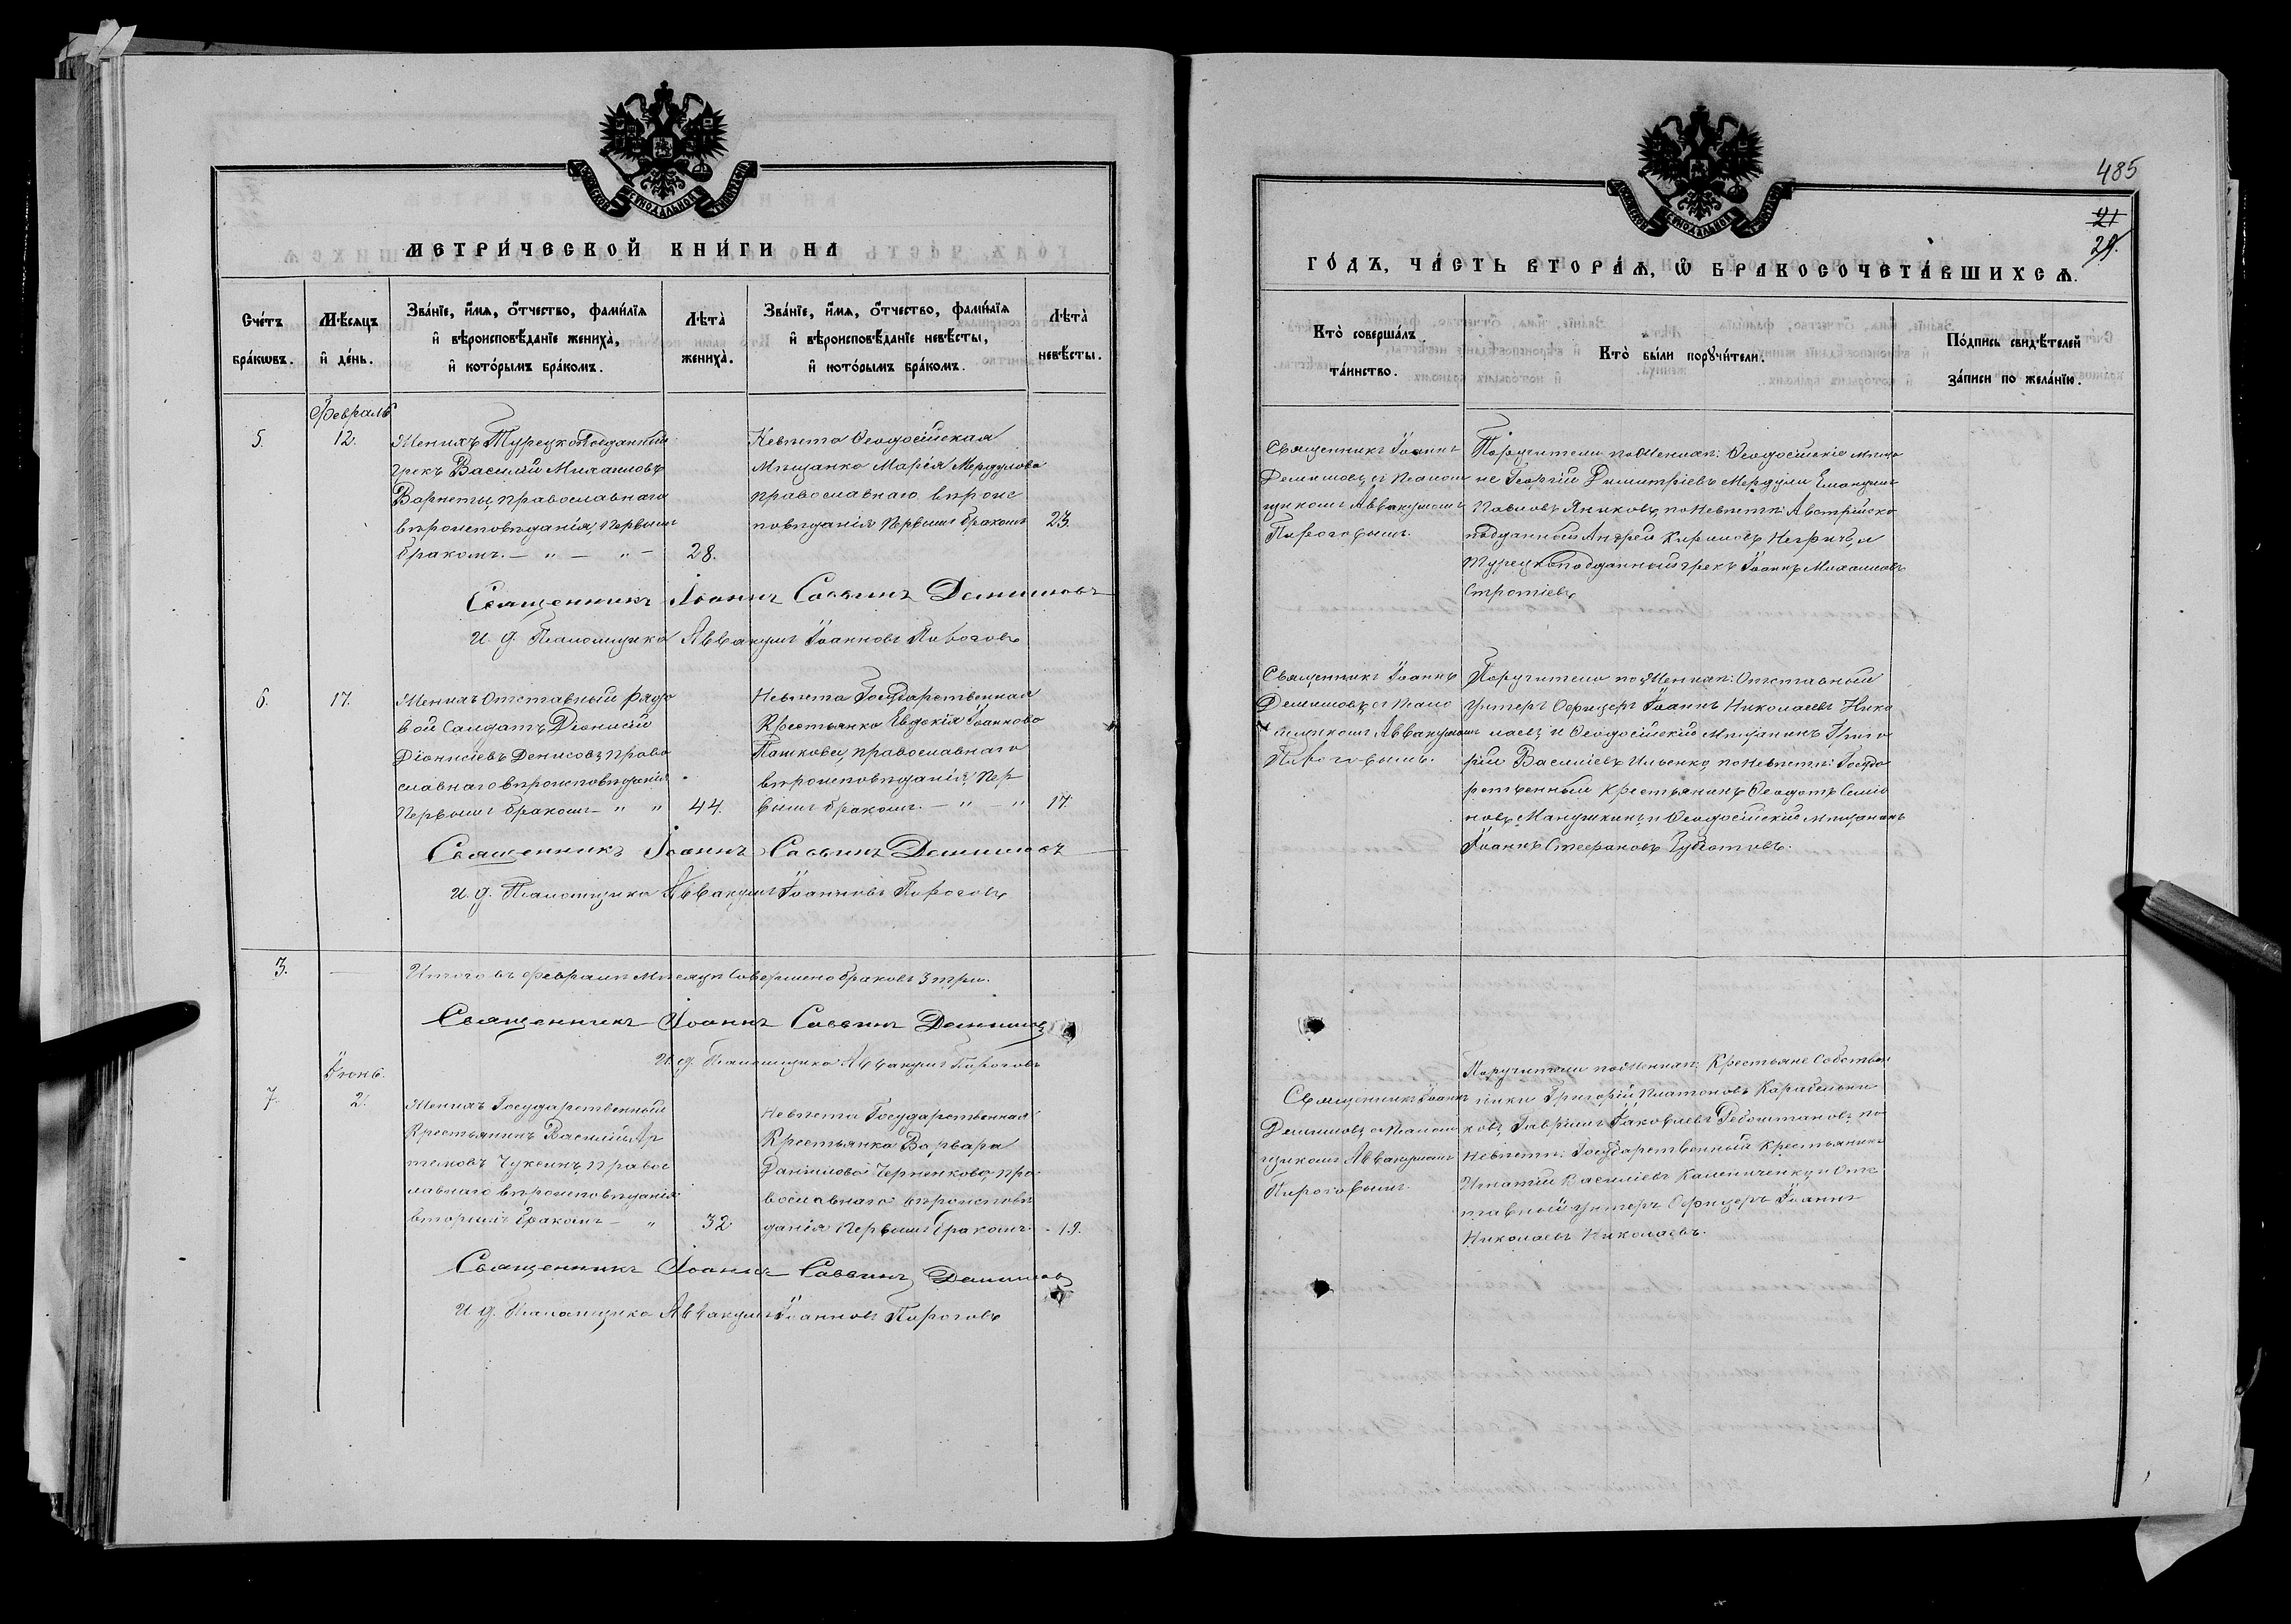 МЕТРИ́ЧЕСКОЙ КНИ́ГИ НА
Сче́тъ бра́кѡвъ.
Мѣ́сяцъ и҆ де́нь.
Зва́нїе, и҆́мѧ, ѻ҆́тчество, фами́лїѧ
и҆ вѣроисповѣ́данїе жениха̀,
и҆ кото́рымъ бра́комъ.
Лѣта̀ жениха̀.
Зва́нїе, и҆́мѧ, ѻ҆́тчество, фами́лїѧ
и҆ вѣроисповѣ́данїе невѣ́сты,
и҆ кото́рымъ бра́комъ.
Лѣта̀ невѣ́сты.
Февраль
5.
12.
Женихъ Турецкоподданный
грекъ Василій Михаиловъ
Варнеты, православнаго
вѣроисповѣданія, первымъ
бракомъ. — " — " —
28.
Невѣста Ѳеодосійская
Мѣщанка Марія Мердулова
православнаго вѣроис
повѣданія первымъ бракомъ
23.
Священникъ Іоаннъ Саввинъ Демишовъ
И. д. Псаломщика Аввакумъ Іоанновъ Пироговъ
6.
17.
Женихъ Отставный рядо
вой Солдатъ Діонисій
Діонисіевъ Денисовъ, право
славнаго вѣроисповѣданія
первымъ бракомъ — " "
44.
Невѣста Государственная
Крестьянка Евдокія Іоаннова
Пошкова, православнаго
вѣроисповѣданія, пер
вымъ бракомъ. — " — "
17.
Священникъ Іоаннъ Саввинъ Демишовъ
И. д. Псаломщика Аввакумъ Іоанновъ Пироговъ
3.
Итого въ февралѣ мѣсяцѣ совершено браковъ 3 три.
Священникъ Іоаннъ Саввинъ Демишовъ
И. д. Псаломщика Аввакумъ Пироговъ
Іюнь.
7.
2.
Женихъ Государственный
Крестьянинъ Василій Ар
темовъ Чуксинъ, правос
лавнаго вѣроисповѣданія
вторымъ бракомъ — "
32
Невѣста Государственная
Крестьянка Варвара
Даніилова Черненкова, пра
вославнаго вѣроисповѣ
данія первымъ бракомъ.
19.
Священникъ Іоаннъ Саввинъ Демишовъ
И. д. Псаломщика Аввакумъ Іоанновъ Пироговъ
485
21
29.
ГО́ДЪ, ЧА́СТЬ ВТОРА́Ѧ, Ѡ҆ БРАКОСОЧЕТА́ВШИХСѦ.
Кто̀ соверша́лъ
та́инство.
Кто̀ бы́ли порꙋчи́тели.
По́дпись свидѣ́телей
за́писи по жела́нїю.
Священникъ Іоаннъ
Демишовъ съ Псалом
щикомъ Аввакумомъ
Пироговымъ.
Поручители по Женихѣ: Ѳеодосійскіе мѣща
не Георгій Димитріевъ Мердули Емануилъ
Павловъ Яниковъ, по Невѣстѣ: Австрійско
подданный Андрей Кириловъ Негричъ, и
Турецкоподданный грекъ Іоаннъ Михаиловъ
Стратіевъ
Священникъ Іоаннъ
Демишовъ съ Псало
мщикомъ Аввакумомъ
Пироговымъ.
Поручители по Женихѣ: Отставный
Унтеръ Офицеръ Іоаннъ Николаевъ Нико
лаевъ и Ѳеодосійскій Мѣщанинъ Григо
рій Василіевъ Ильенко, по Невѣстѣ: Госуда
рственный крестьянинъ Ѳеодотъ Семіо
новъ Манушкинъ и Ѳеодосійскій Мѣщанинъ
Іоаннъ Стефановъ
Священникъ Іоаннъ
Демишовъ съ Псалом
щикомъ Аввакумомъ
Пироговымъ.
Поручители по Женихѣ: Крестьяне Собствен
ники Григорій Платоновъ Карабельни
ковъ, Гавріилъ Іаковлевъ по
Невѣстѣ: Государственный Крестьянинъ
Игнатій Василіевъ Калениченко, и Отс
тавный Унтеръ Офицеръ Іоаннъ
Николаевъ Николаевъ.